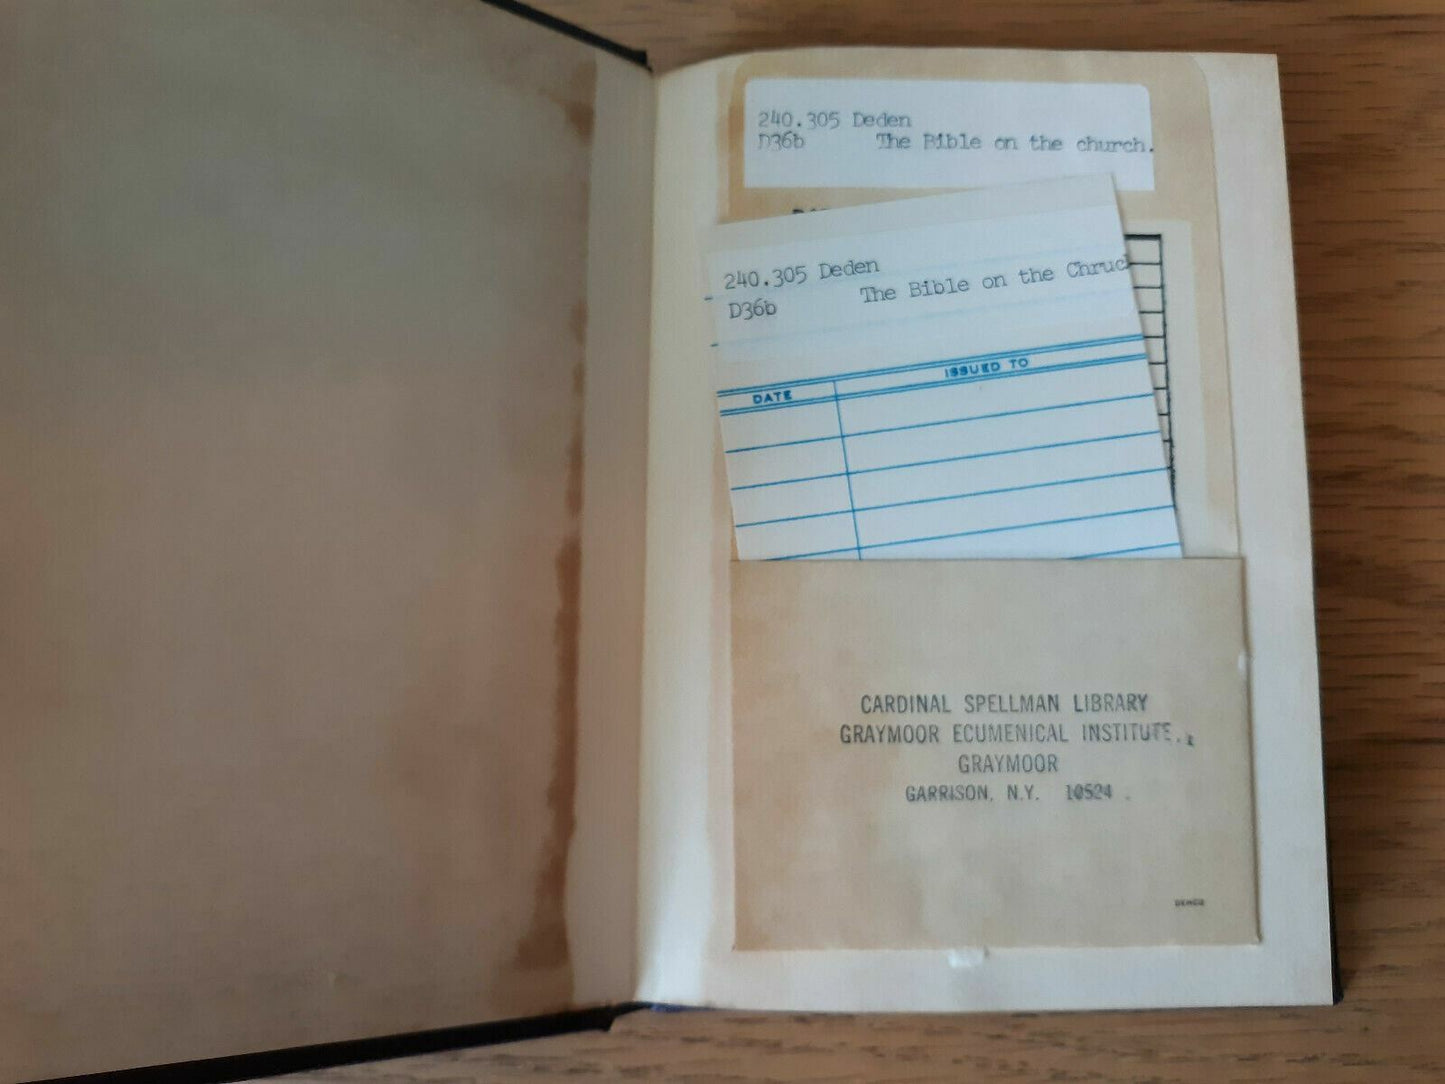 240.305 Deden
D36b The Bible on the church.
240.305 Deden
D36b The Bible on the Chruc
DATE ISSUED TO
CARDINAL SPELLMAN LIBRARY
GRAYMOOR ECUMENICAL INSTITUTE,
GRAYMOOR
GARRISON, N.Y. 10524 .
DEMCO